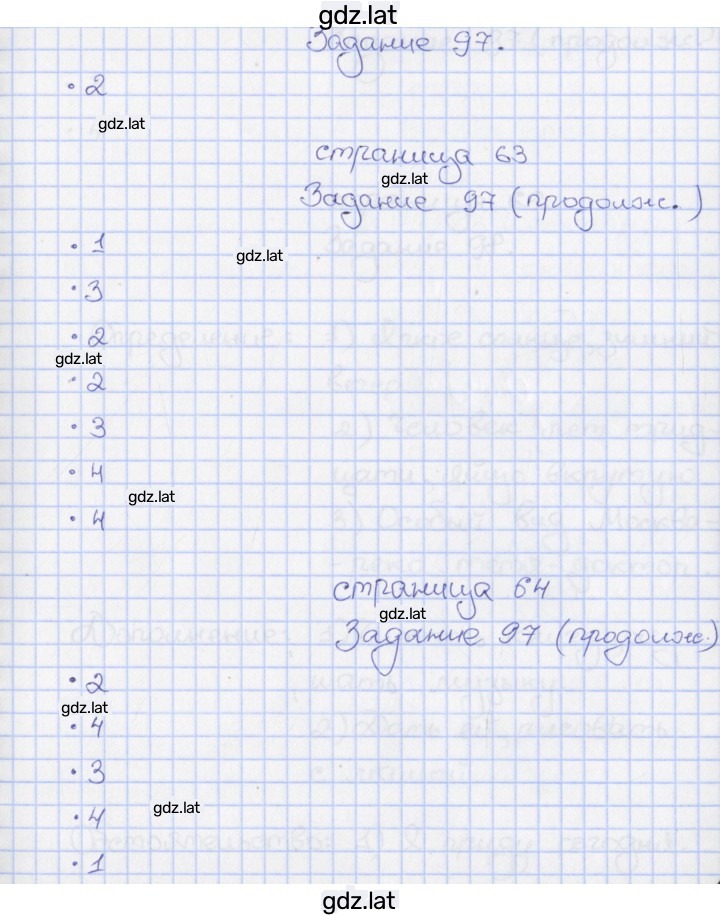 gdz.lat
Задание 97.
• 2
gdz.lat
страница 63
gdz.lat
Задание 97 (продолж.)
• 1
gdz.lat
• 3
• 2
gdz.lat
• 2
• 3
• 4
gdz.lat
• 4
страница 64
gdz.lat
Задание 97 (продолж.)
• 2
gdz.lat
• 4
• 3
gdz.lat
• 4
• 1
gdz.lat